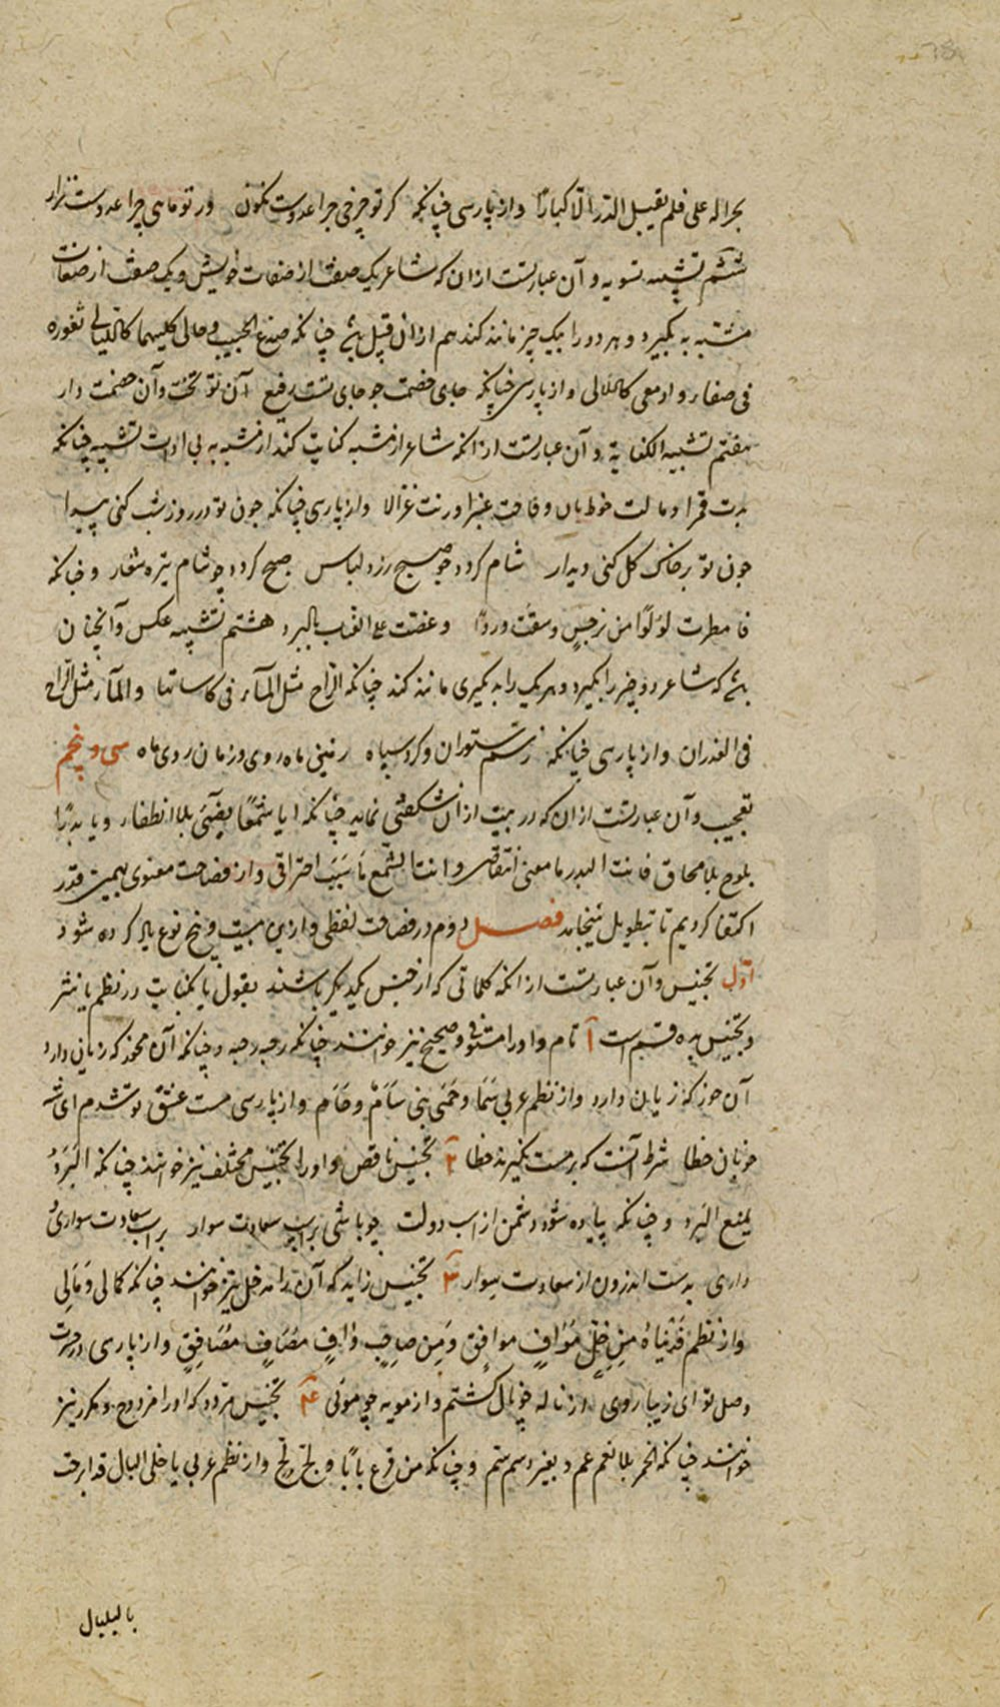 بحر اله علی فلم یقبل الدر الا کبارا و از پارسی چنانکه کر تو چرخی چرا عدوست نکون ور تو ماهی چرا عدوست نزار
ششم تشبیه تسویه و آن عبارتست ازان که شاعر یک صفت از صفات خویش و یک صفت از صفات
مشبه به بکیرد و هر دو را بیک چیز مانند کند هم ازان قبیل چنانکه صدغ الحبیب و حالی کلیهما کاللیالی ثغوره
فی صفاء و ادمعی کاللآلی و از پارسی چنانکه جای خصمت چو جای تست رفیع آن تو تخت و آن خصمت دار
هفتم تشبیه الکنایة و آن عبارتست از انکه شاعر از مشبه کنایت کند از مشبه به بی ادات تشبیه چنانکه
بدت قمرا و مالت خوط بان و فاحت عنبرا و رنت غزالا و از پارسی چنانکه چون تو در روز شب کنی پیدا
چون تو بر خاک کل کنی دیدار شام کردد چو صبح زرد لباس صبح کردد چو شام تیره شعار و چنانکه
فامطرت لؤلؤا من نرجس و سقت وردا و عضت علی العناب بالبرد هشتم تشبیه عکس و آنچنان
که شاعر دو چیز را بکیرد و هر یک را به دیکری مانند کند چنانکه الراح مثل الماء فی کاساتها والماء مثل الراح
فی الغدران و از پارسی چنانکه ز سم ستوران و کرد سپاه زمین ماه روی و زمان روی ماه سی و پنجم
تعجب و آن عبارتست ازان که در بیت ازان شکفتی نماید چنانکه ایا شمعا یضیئ بلا انطفاء و یا بدرا
یلوح بلا محاق فانت البدر ما معنی انتقاصی و انت الشمع ما سبب احتراقی و از فصاحت معنوی بهمین قدر
اکتفا کردیم تا بتطویل نینجامد فصل دوم در فصاحت لفظی و ازین بیست و پنج نوع یاد کرده شود
اول تجنیس و آن عبارتست از انکه کلماتی که از جنس یکدیکر باشند بقول یا کتابت در نظم یا نثر
و تجنیس به ده قسم است ۱ تام و او را مستوفی و صحیح نیز خوانند چنانکه رحبه رحبه و چنانکه آن مخور که زیانی دارد
آن خور که زیان دارد و از نظم عربی سما و حمی بنی سام و حام و از پارسی مست عشق تو شدم ای شه
خوبان خطا شرط آنست که بر مست نکیرند خطا ۲ تجنیس ناقص و او را تجنیس مختلف نیز خوانند چنانکه البرد
یمنع البرد و چنانکه پیاده شود دشمن از اسب دولت چو باشی بر اسب سعادت سوار بر اسب سعادت سواری و
داری بدست اندرون از سعادت سوار ۳ تجنیس زاید که آن را مذیل نیز خوانند چنانکه کمالی و مالی
و از نظم فدنیاه من خل مواف موافق و من صاحب واف مصاف مصافق و از پارسی در حسرت
وصل تو ای زیبا روی از ناله چو نال کشتم و از مویه چو موئی ۴ تجنیس مزدوج که او را مزدوج و مکرر نیز
خوانند چنانکه الخمر بلا نغم غم و بغیر دسم سم و چنانکه من قرع بابا و لج ولج و از نظم عربی یا خلی البال قد ابرحت
بالبلبال